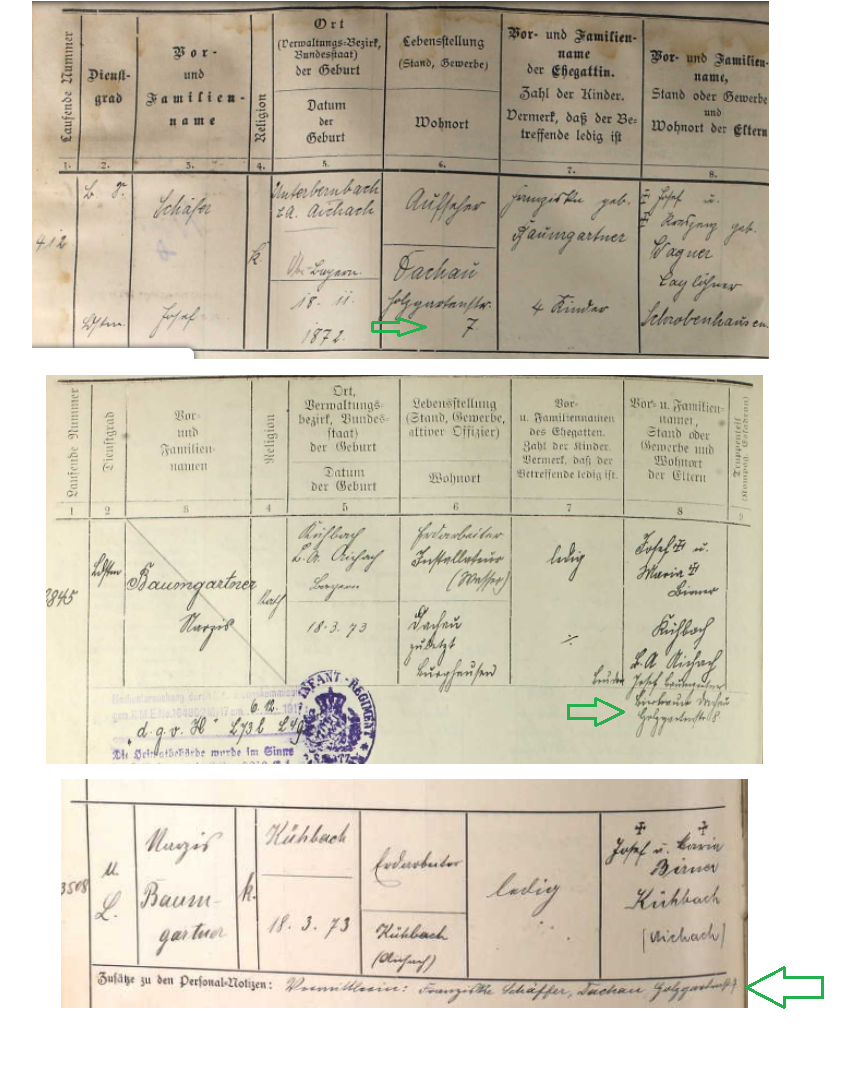 Laufende Nummer
Dienst-
grad
Vor-
und
Familien-
name
Religion
Ort
(Verwaltungs-Bezirk,
Bundesstaat)
der Geburt
Datum
der
Geburt
Lebensstellung
(Stand, Gewerbe)
Wohnort
Vor- und Familien-
name
der Ehegattin.
Zahl der Kinder.
Vermerk, daß der Be-
treffende ledig ist
Vor- und Familien-
name,
Stand oder Gewerbe
und
Wohnort der Eltern
1. 2. 3. 4. 5. 6. 7. 8.
412
Ldstm
Schäfer
Josef
k.
Unterbernbach
B.A. Aichach
Bayern.
18. 11.
1872.
Aufseher
Dachau
Holzgartenstr.
7.
Franziska geb.
Baumgartner
4 Kinder
Josef u.
geb.
Wagner
Taglöhner
Schrobenhausen.
Laufende Nummer
Dienstgrad
Vor-
und
Familien-
namen
Religion
Ort,
Verwaltungs-
bezirk, Bundes-
staat)
der Geburt
Datum
der Geburt
Lebensstellung
(Stand, Gewerbe,
aktiver Offizier)
Wohnort
Vor-
u. Familiennamen
des Ehegatten.
Zahl der Kinder.
Vermerk, daß der
Betreffende ledig ist.
Vor- u. Familien-
namen,
Stand oder
Gewerbe und
Wohnort
der Eltern
Truppenteil
(Kompag. Eskadron)
1 2 3 4 5 6 7 8 9
2845
Ldstm
Baumgartner
Narzis
Kath
Kühbach
B.A. Aichach
Bayern
18.3.73
Erdarbeiter
Installateur
(Wasser)
Dachau
zuletzt
Burghausen
ledig
Josef u.
Maria
Birner
Kühbach
B.A Aichach
Bruder Josef Baumgartner
Dachau
Holzgartenstr 8
INFANT-REGIMENT
6.12.
"d.g.v. H"
Die Heimatbehörde wurde im Sinne
3508
Narzis
Baum-
gartner
k.
Kühbach
18. 3. 73
Erdarbeiter
Kühbach
(Aichach)
ledig
Josef u. Maria
Birner
Kühbach
(Aichach)
Zusätze zu den Personal-Notizen: Vermittlerin: Franziska Schäffer, Dachau Holzgartenstr 7